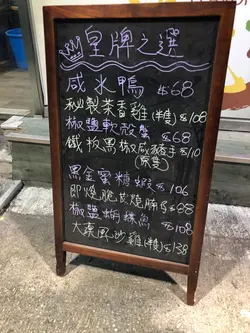 皇牌之選
咸水鴨 $68
秘製茶香雞(半隻) $108
椒鹽軟殼蟹 $68
鐵板黑椒咸豬手 $110
黑金蜜糖蝦 $106
即燒脆炭燒腩 $88
椒鹽蝴蝶魚 $108
大漠風沙雞(半隻) $138